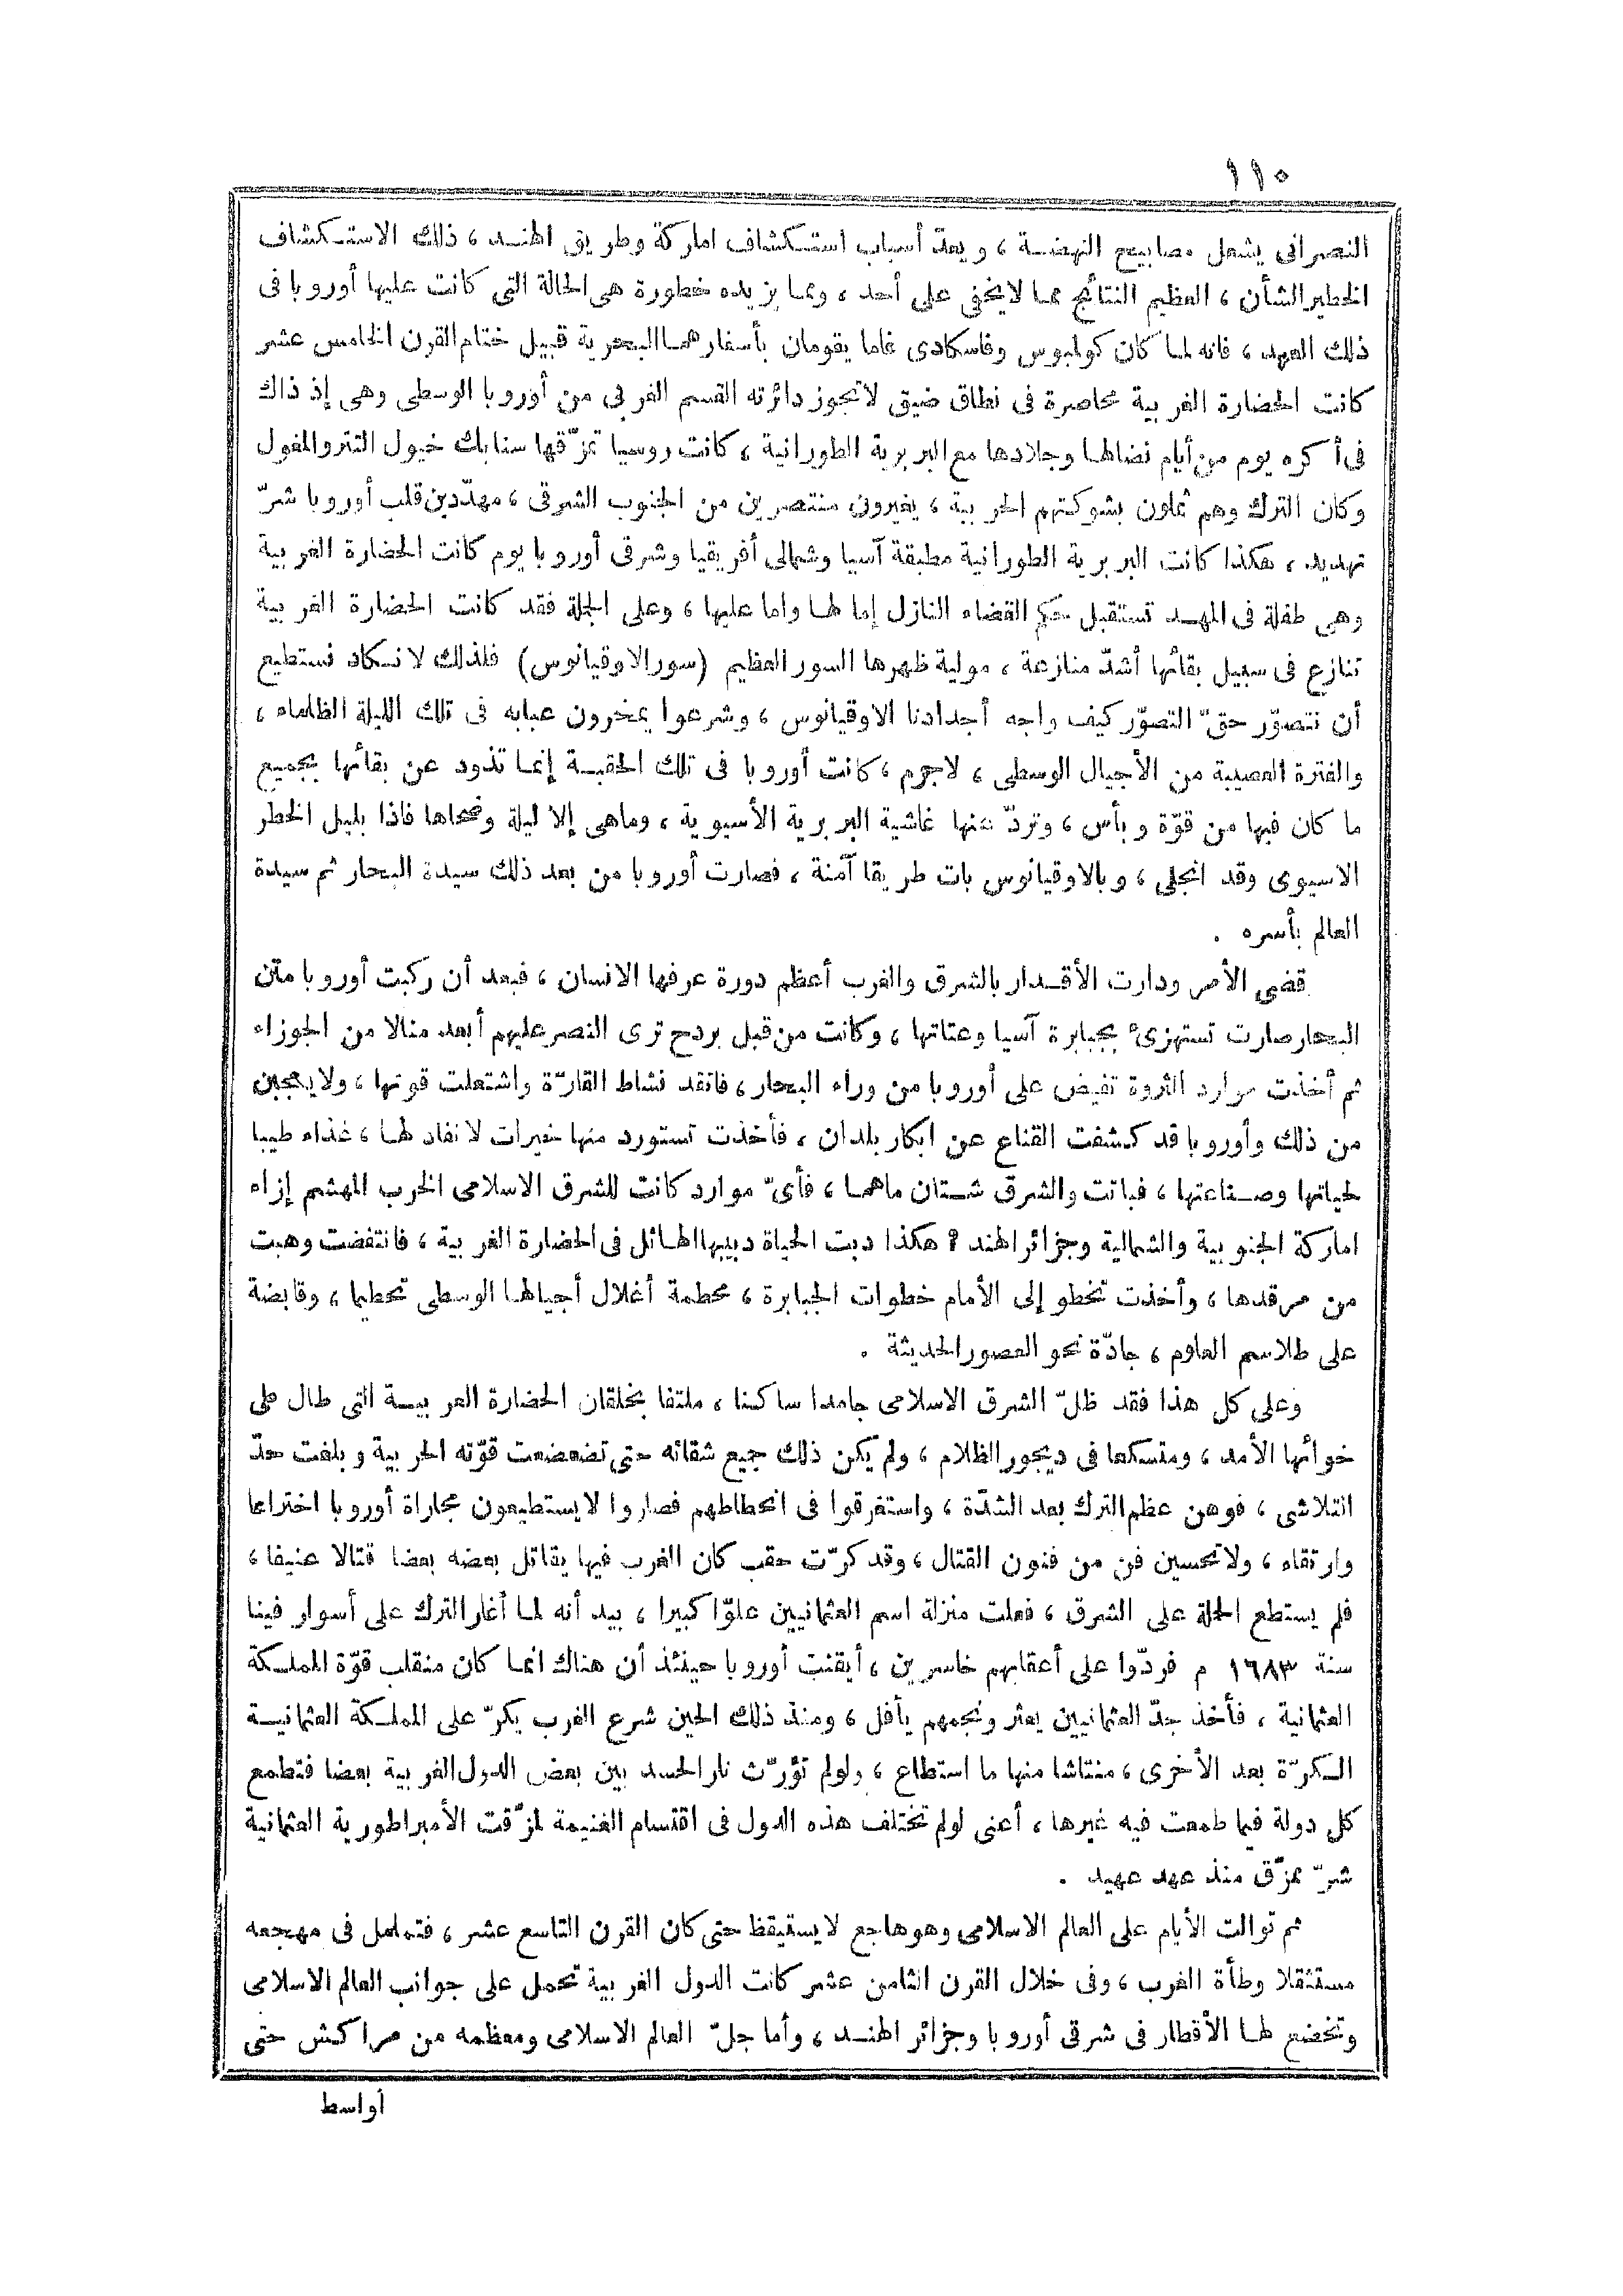 ١١٠
النصرانى يشعل مصابيح النهضة ، ويعدّ أسباب استكشاف اماركة وطريق الهند ، ذلك الاستكشاف
الخطير الشأن ، العظيم النتائج مما لايخفى على أحد ، ومما يزيده خطورة هى الحالة التى كانت عليها أوروبا فى
ذلك العهد ، فانه لما كان كولمبوس وفاسكادى غاما يقومان بأسفارهما البحرية قبيل ختام القرن الخامس عشر
كانت الحضارة الغربية محاصرة فى نطاق ضيق لاتجوز دائرته القسم الغربى من أوروبا الوسطى وهى إذ ذاك
فى أكره يوم من أيام نضالها وجلادها مع البربرية الطورانية ، كانت روسيا تمزّقها سنابك خيول التتر والمغول
وكان الترك وهم ثملون بشوكتهم الحربية ، يغيرون منتصرين من الجنوب الشرقى ، مهدّدين قلب أوروبا شرّ
تهديد ، هكذا كانت البربرية الطورانية مطبقة آسيا وشمالى أفريقيا وشرقى أوروبا يوم كانت الحضارة الغربية
وهى طفلة فى المهد تستقبل حكم القضاء النازل إما لها واما عليها ، وعلى الجملة فقد كانت الحضارة الغربية
تنازع فى سبيل بقائها أشدّ منازعة ، مولية ظهرها السور العظيم (سور الاوقيانوس) فلذلك لا نكاد نستطيع
أن نتصوّر حقّ التصوّر كيف واجه أجدادنا الاوقيانوس ، وشرعوا يمخرون عبابه فى تلك الليلة الظلماء ،
والفترة العصيبة من الأجيال الوسطى ، لاجرم ، كانت أوروبا فى تلك الحقبة إنما تذود عن بقائها بجميع
ما كان فيها من قوّة وبأس ، وتردّ عنها غاشية البربرية الأسيوية ، وماهى إلا ليلة وضحاها فاذا بليل الخطر
الاسيوى وقد انجلى ، وبالاوقيانوس بات طريقا آمنة ، فصارت أوروبا من بعد ذلك سيدة البحار ثم سيدة
العالم بأسره .
قضى الأمر ودارت الأقدار بالشرق والغرب أعظم دورة عرفها الانسان ، فبعد أن ركبت أوروبا متن
البحار صارت تستهزئ بجبابرة آسيا وعتاتها ، وكانت من قبل بردح ترى النصر عليهم أبعد منالا من الجوزاء
ثم أخذت موارد الثروة تفيض على أوروبا من وراء البحار ، فاتقد نشاط القارّة واشتعلت قوتها ، ولا يعجبن
من ذلك وأوروبا قد كشفت القناع عن ابكار بلدان ، فأخذت تستورد منها خيرات لا نفاد لها ، غذاء طيبا
لحياتها وصناعتها ، فباتت والشرق شتان ماهما ، فأىّ موارد كانت للشرق الاسلامى الخرب المهشم إزاء
اماركة الجنوبية والشمالية وجزائر الهند ؟ هكذا دبت الحياة دبيبها الهائل فى الحضارة الغربية ، فانتفضت وهبت
من مرقدها ، وأخذت تخطو إلى الأمام خطوات الجبابرة ، محطمة أغلال أجيالها الوسطى تحطيما ، وقابضة
على طلاسم العلوم ، جادّة نحو العصور الحديثة .
وعلى كل هذا فقد ظلّ الشرق الاسلامى جامدا ساكنا ، ملتفا بخلقان الحضارة العربية التى طال على
خوائها الأمد ، ومتسكعا فى ديجور الظلام ، ولم يكن ذلك جميع شقائه حتى تضعضعت قوّته الحربية وبلغت حدّ
التلاشى ، فوهن عظم الترك بعد الشدّة ، واستغرقوا فى انحطاطهم فصاروا لا يستطيعون مجاراة أوروبا اختراعا
وارتقاء ، ولا تحسين فن من فنون القتال ، وقد كرّت حقب كان الغرب فيها يقاتل بعضه بعضا قتالا عنيفا ،
فلم يستطع الحملة على الشرق ، فعلت منزلة اسم العثمانيين علوّا كبيرا ، بيد أنه لما أغار الترك على أسوار فينا
سنة ١٦٨٣ م فردّوا على أعقابهم خاسرين ، أيقنت أوروبا حينئذ أن هناك انما كان منقلب قوّة المملكة
العثمانية ، فأخذ جدّ العثمانيين يعثر ونجمهم يأفل ، ومنذ ذلك الحين شرع الغرب يكرّ على المملكة العثمانية
الكرّة بعد الأخرى ، منتاشا منها ما استطاع ، ولولم تؤرّث نار الحسد بين بعض الدول الغربية بعضا فتطمع
كل دولة فيما طمعت فيه غيرها ، أعنى لولم تختلف هذه الدول فى اقتسام الغنيمة لمزّقت الأمبراطورية العثمانية
شرّ ممزّق منذ عهد عهيد .
ثم توالت الأيام على العالم الاسلامى وهو هاجع لا يستيقظ حتى كان القرن التاسع عشر ، فتململ فى مهجعه
مستثقلا وطأة الغرب ، وفى خلال القرن الثامن عشر كانت الدول الغربية تحمل على جوانب العالم الاسلامى
وتخضع لها الأقطار فى شرقى أوروبا وجزائر الهند ، وأما جلّ العالم الاسلامى ومعظمه من مراكش حتى
أواسط